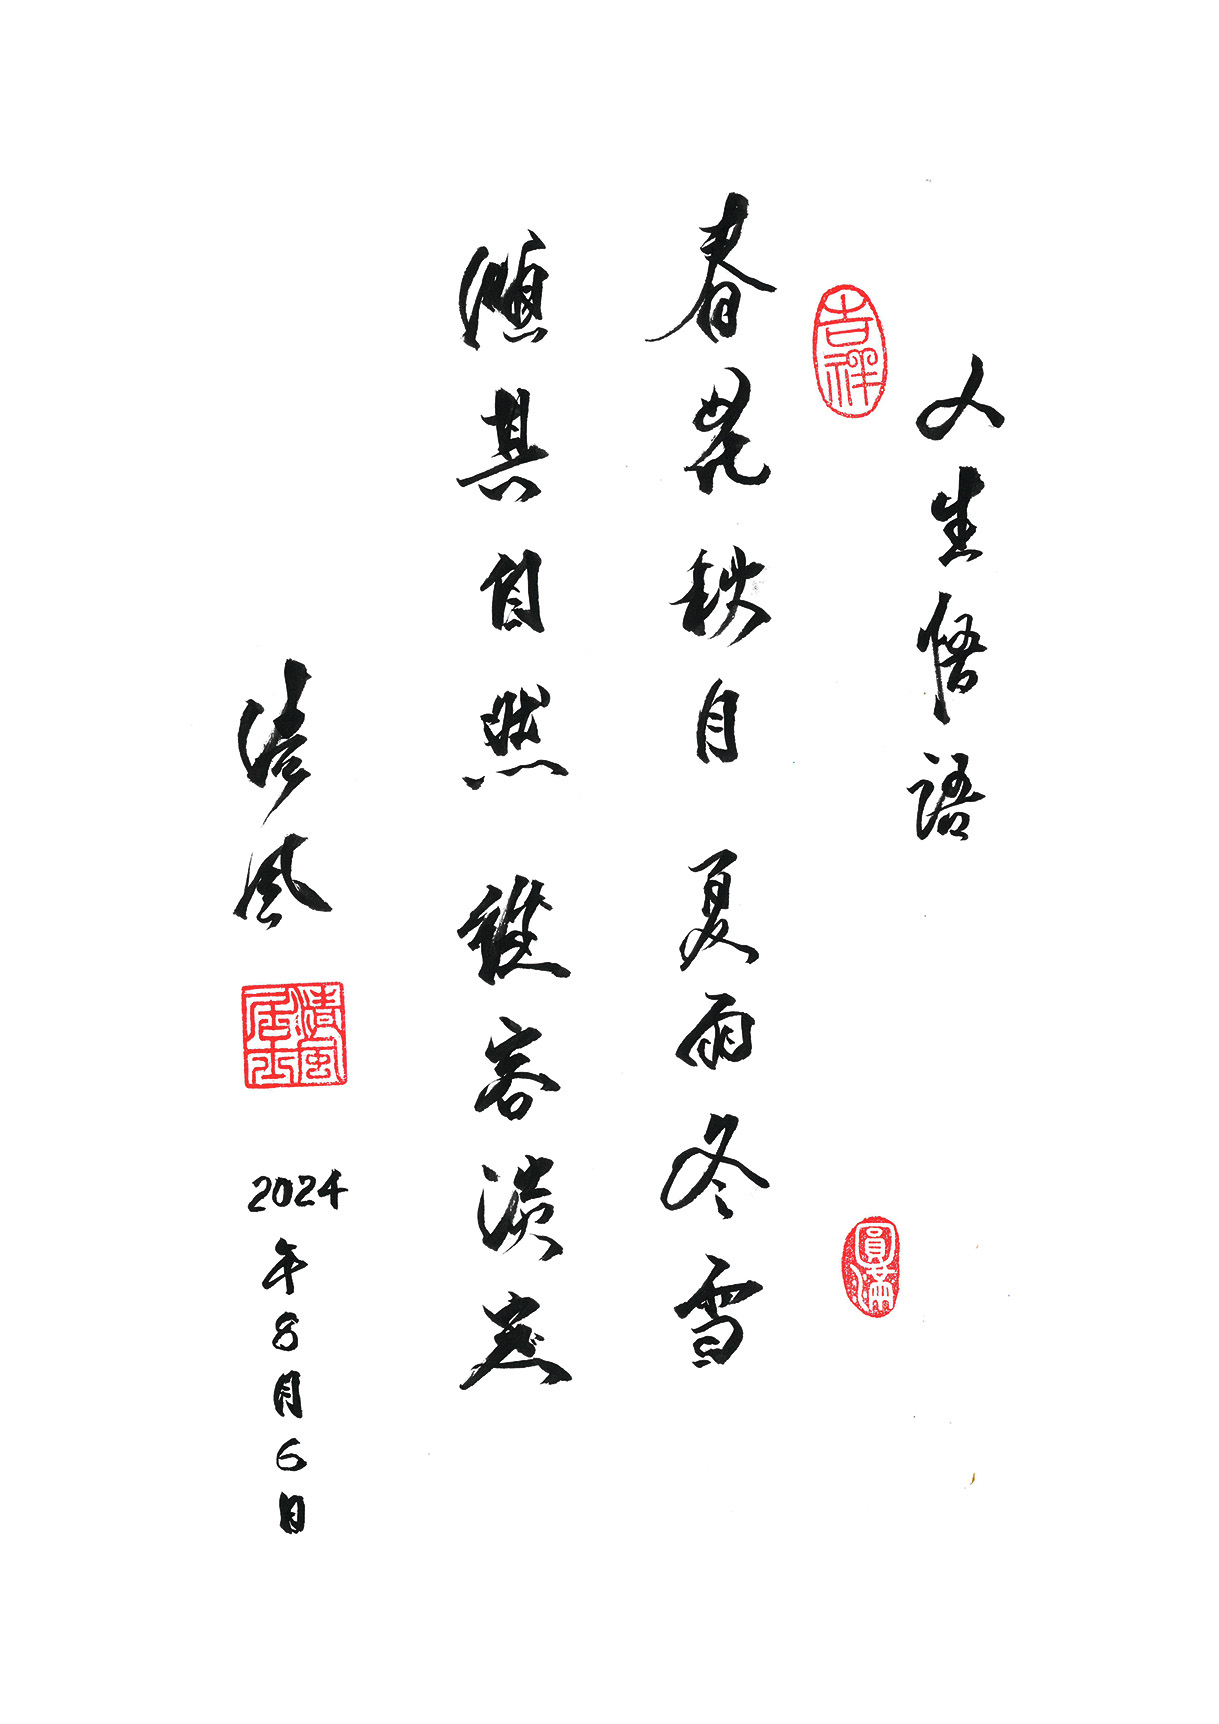 人生悟語
吉祥
春花秋月 夏雨冬雪
圓滿
順其自然 從容淡定
清風
清風居士
2024年8月6日